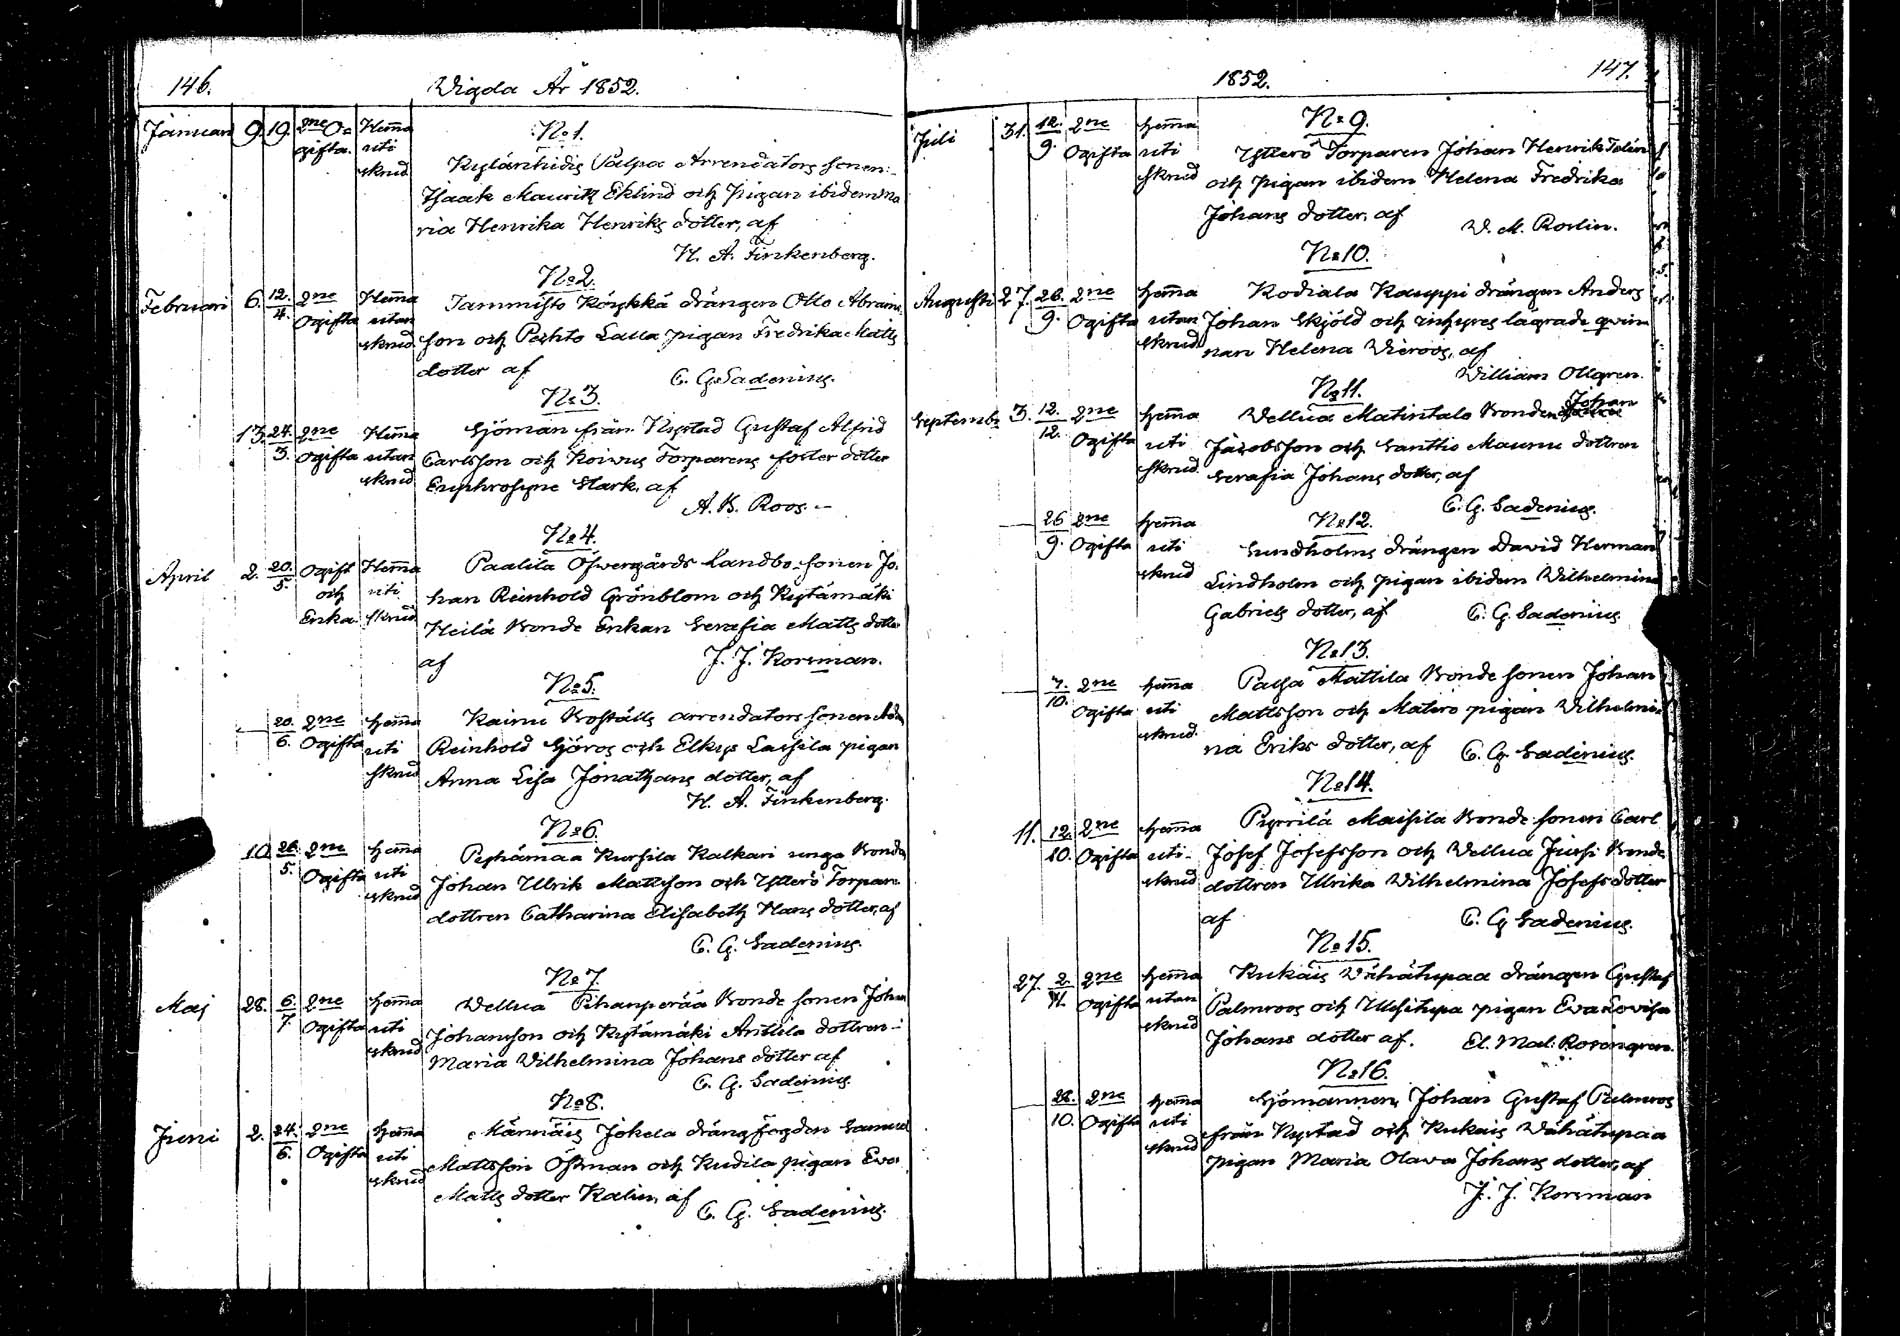 146.
Wigda År 1852.
Januari 9. 19. 2ne O=
gifta. Hemma
uti
skrud
No 1.
Kylänhidis Välpa Arrendators sonen
Isaak Mauritz Eklind och pigan ibidem Ma
ria Henrika Henriks dotter, af
H. A. Finkenberg.
Februari 6. 12./4. 2ne
Ogifta Hemma
utan
skrud
No 2.
Tammisto drängen Otto Abrams
son och Pyhto Lalla pigan Fredrika Matts
dotter af
C. G. Sadenius.
13. 24./3. 2ne
Ogifta Hemma
utan
skrud
No 3.
Sjöman från Nystad Gustaf Alfrid
Carlsson och Koivus Torparens foster dotter
Euphrosyne Stark, af
A. B. Roos.
April 2. 20./5. Ogift
och
Enka Hemma
uti
skrud
No 4.
Paalila Öfvergårds Landbo-sonen Jo-
han Reinhold Grönblom och Kystämäki
Heilä Bonde Enkan Serafia Matts dotter
af
J. J. Korsman.
— 20./6. 2ne
Ogifta hemma
uti
skrud
No 5.
Kainu Boställs arrendators sonen
Reinhold Sjöros och Elkys Lassila pigan
Anna Lisa Jonathans dotter, af
H. A. Finkenberg.
10. 26./5. 2ne
Ogifta hemma
uti
skrud
No 6.
Pyhämaa Kursila Kalkari unga Bonden
Johan Ulrik Mattsson och Ytterö Torpare
dottren Catharina Elisabeth Hans dotter, af
C. G. Sadenius.
Maj 28. 6./7. 2ne
Ogifta hemma
uti
skrud
No 7.
Vellua Pihanperää Bonde sonen Johan
Johansson och Kystämäki Anttila dottren
Maria Vilhelmina Johans dotter af
C. G. Sadenius.
Juni 2. 24./6. 2ne
Ogifta hemma
uti
skrud
No 8.
Männäis Jokela drängfogden Samuel
Mattsson Östman och Kudila pigan Eva
Matts dotter Kalin, af
C. G. Sadenius.
1852.
147.
Juli 31. 12./9. 2ne
Ogifta hemma
uti
skrud
No 9.
Ytterö Torparen Johan Henrik Telin
och pigan ibidem Helena Fredrika
Johans dotter, af
V. M. Roslin.
Augusti 27. 26./9. 2ne
Ogifta hemma
utan
skrud
No 10.
Kodiala Kauppi drängen Anders
Johan Skjöld och inhyses lägrade qvin
nan Helena Vieroos, af
William Ollgren.
Septemb. 3. 12./12. 2ne
Ogifta hemma
uti
skrud
No 11.
Vellua Matintalo Bonden Johan
Jacobsson och Santtio Maunu dottren
Serafia Johans dotter, af
C. G. Sadenius.
— 26/9. 2ne
Ogifta hemma
uti
skrud
No 12.
Sundholms drängen David Herman
Lindholm och pigan ibidem Wilhelmina
Gabriels dotter, af
C. G. Sadenius.
— 7./10. 2ne
Ogifta hemma
uti
skrud
No 13.
Mattila Bonde sonen Johan
Mattsson och Materö pigan Vilhelmi-
na Eriks dotter, af
C. G. Sadenius.
11. 12./10. 2ne
Ogifta hemma
uti
skrud
No 14.
Pyrrilä Maisila Bonde sonen Carl
Josef Josefsson och Vellua Jussi Bonde
dottren Ulrika Wilhelmina Josefs dotter
af
C. G. Sadenius.
27. 2./11. 2ne
Ogifta hemma
utan
skrud
No 15.
Kukais Vähätupaa drängen Gustaf
Palmroos och pigan Eva Lovisa
Johans dotter af.
El. Mal. Rosengren.
— 28./10. 2ne
Ogifta hemma
uti
skrud
No 16.
Sjömannen Johan Gustaf Palmroos
från Nystad och Kukais Vähätupaa
pigan Maria Olava Johans dotter, af
J. J. Korsman